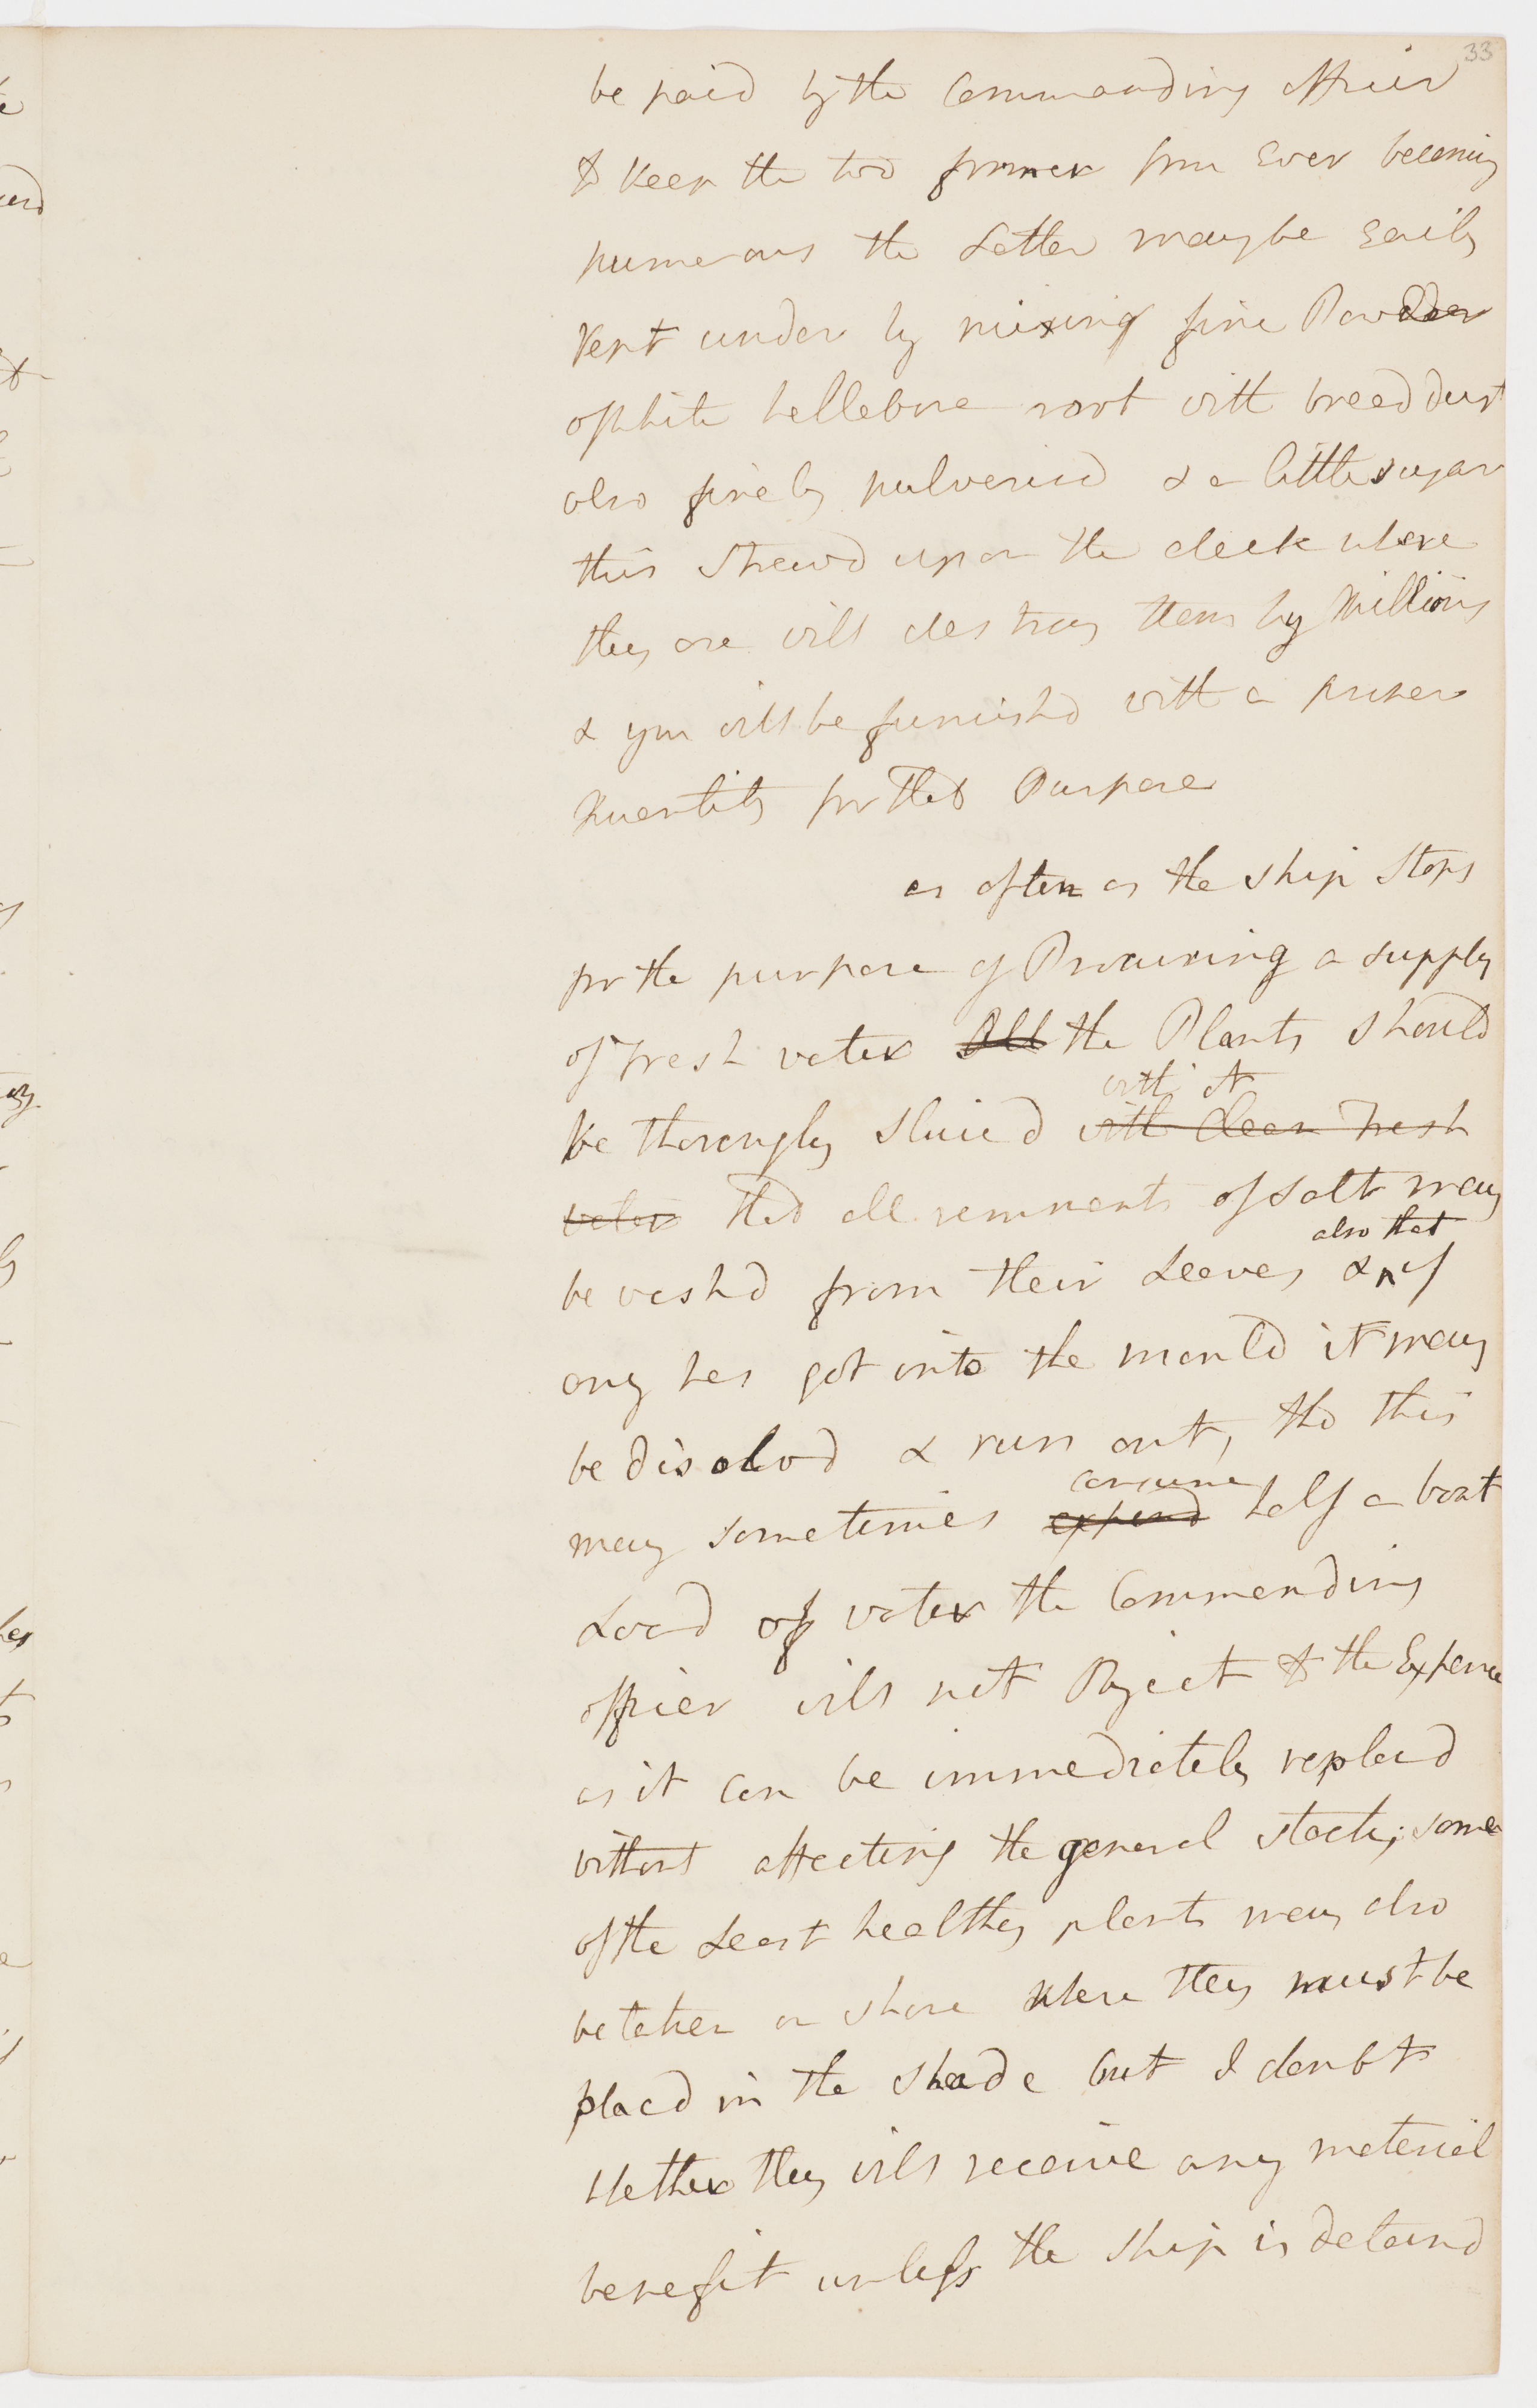 33
be paid by the Commanding officer
to keep the two former from Ever becoming
numerous the Latter may be Easily
kept under by mixing fine Powder
of white hellebore root with bread dust
also finely pulverisd & a little sugar
this strewd upon the deck where
they are will destroy them by Millions
& you will be furnishd with a proper
Quantity for that Purpose
as often as the ship stops
for the purpose of Procuring a supply
of fresh water All the Plants should
with it
be thorougly sluicd with clean fresh
water that all remnants of salt may
also that
be washd from their Leaves & if
any has got into the mould it may
be disolvd & run out, tho this
consume
may sometimes expend half a boat
Load of water the Commanding
officer will not Object to the Expence
as it can be immediately replacd
without affecting the general stock; some
of the Least healthy plants may also
be taken on shore where they must be
placd in the shade but I doubt
whether they will receive any material
benefit unless the ship is detaind